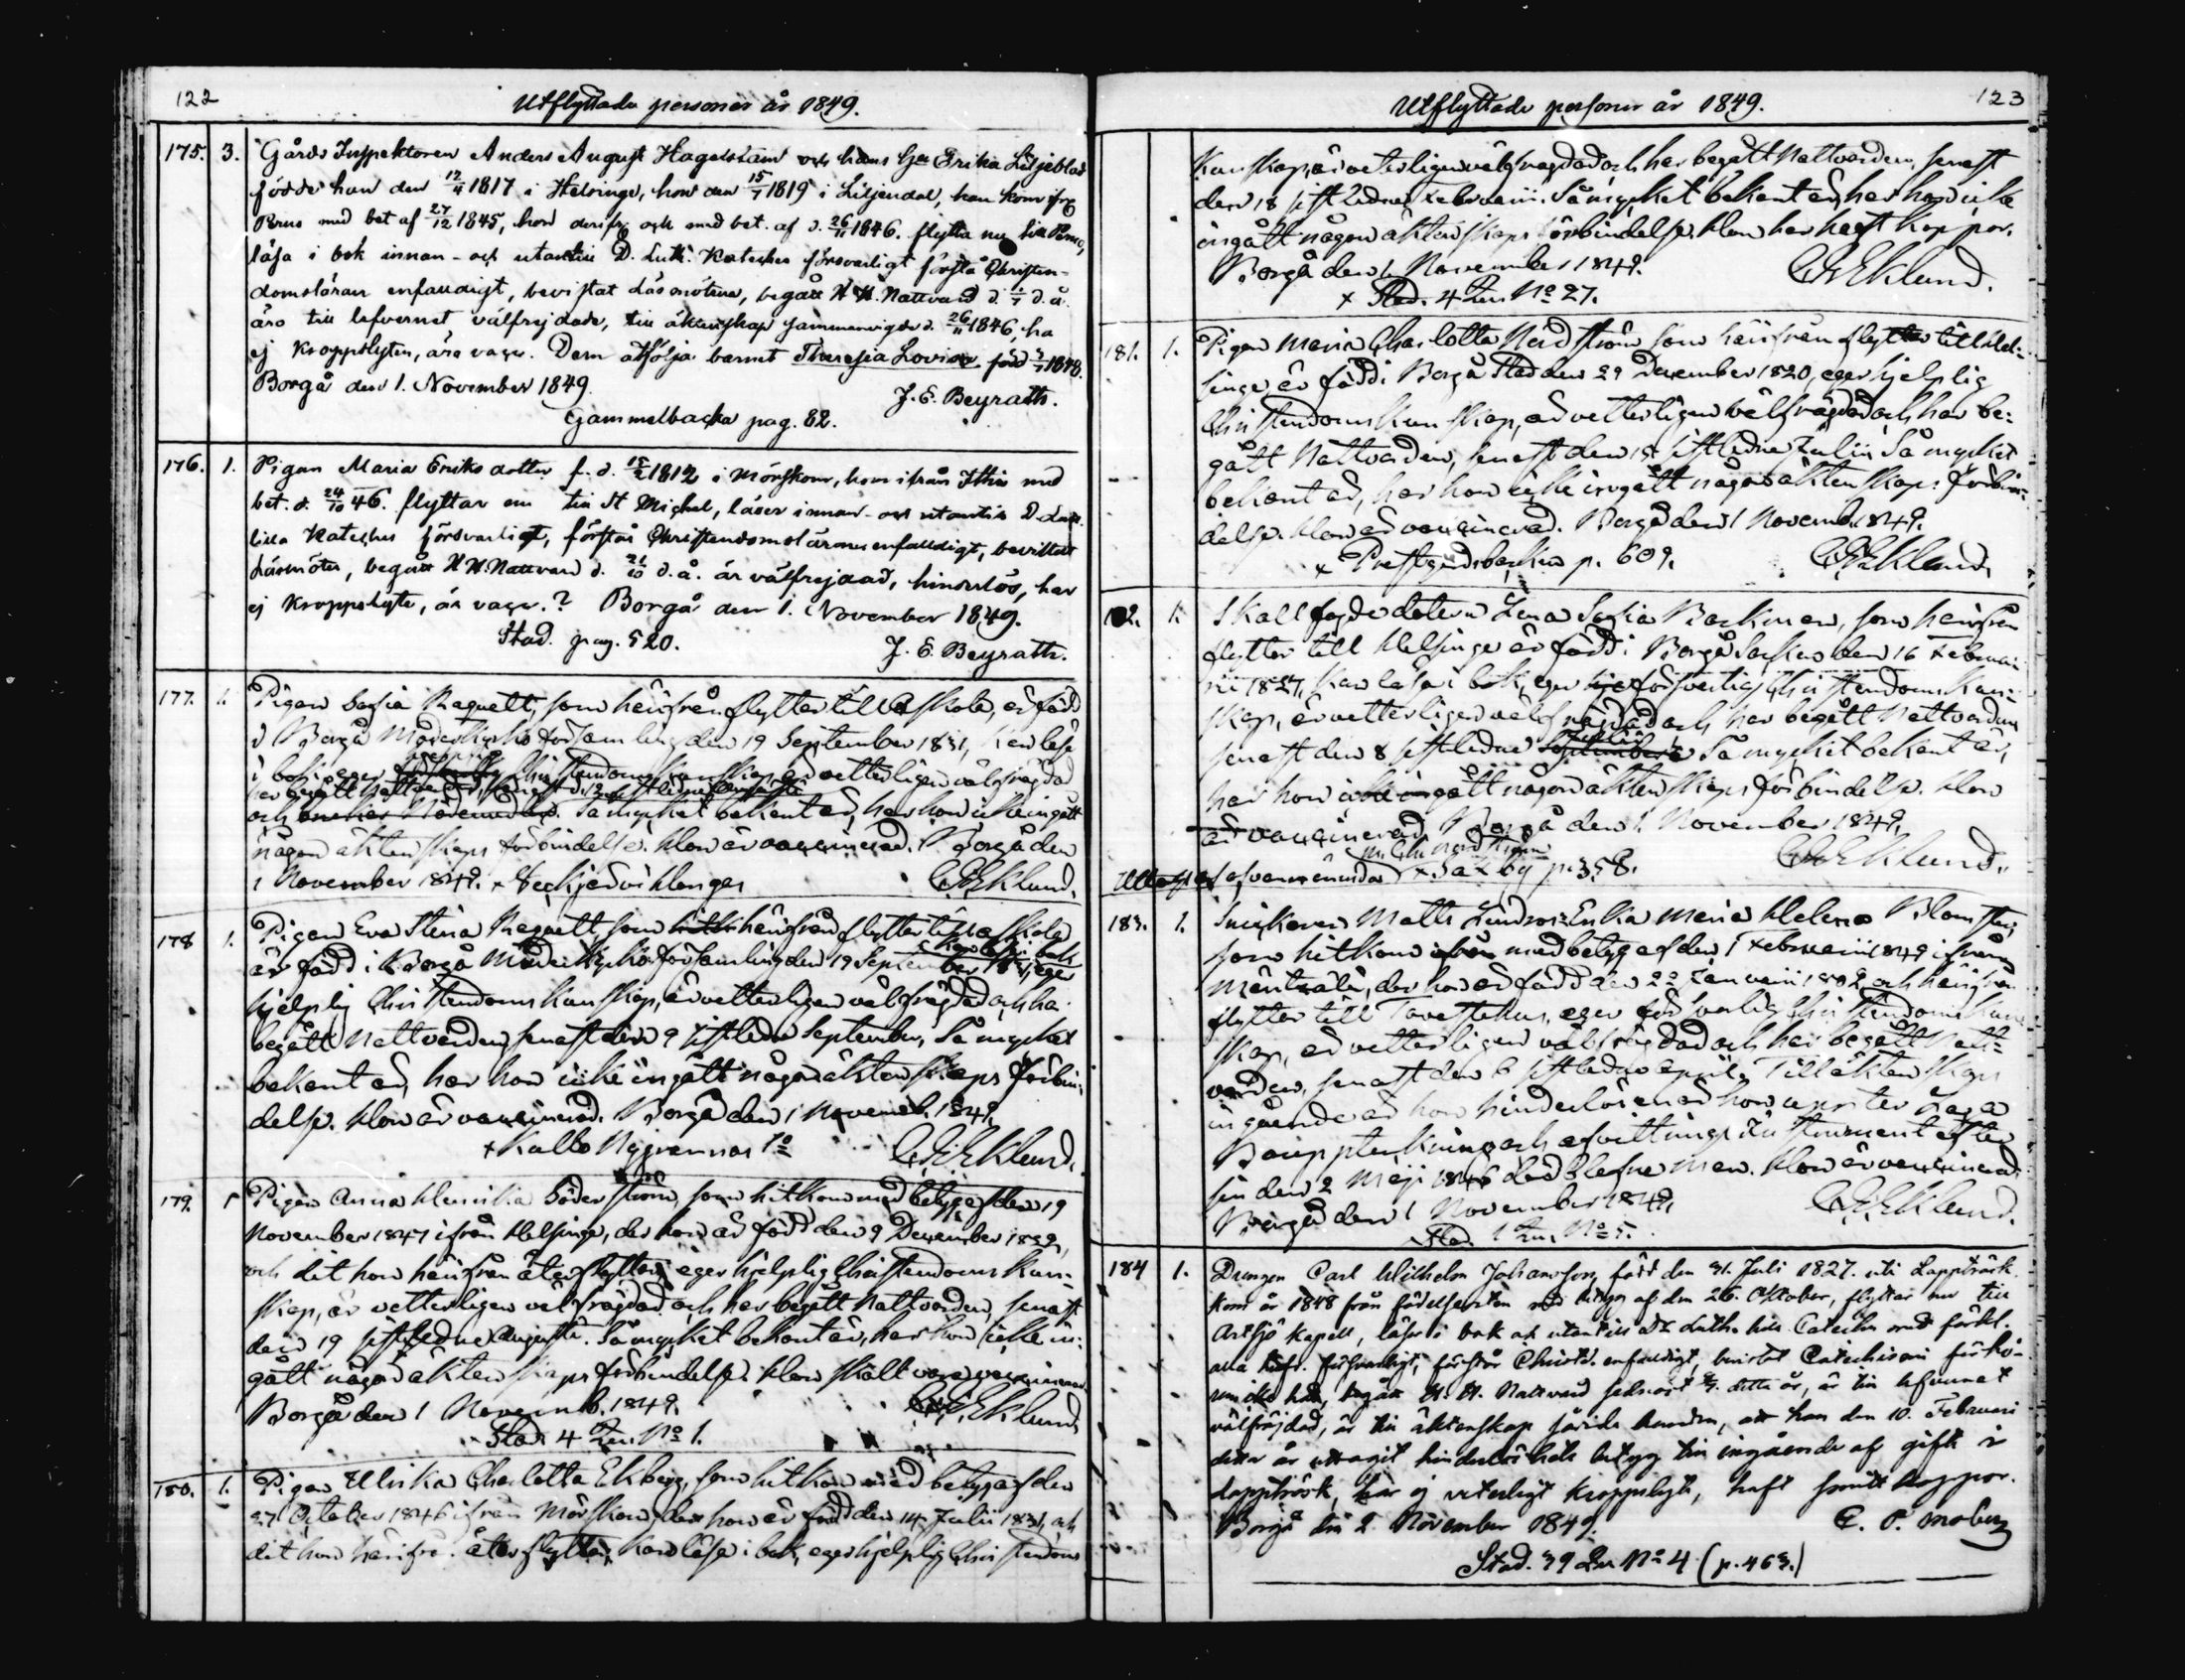 122
Utflyttade personer år 1849.
175. 3. Gårds Inspektoren Anders August Hagelstam och hans h:u Erika Liljeblad
födde han den 12/4 1817 i Helsinge, hon den 15/7 1819 i Liljendal, han kom ifr.
Perno med bet af 27/12 1845, hon derifr. och med bet. af d. 26/11 1846. flytta nu till Perno,
läsa i bok innan- och utantill D. Luth. Kateches försvarligt förstå Christen-
domsläran enfaldigt, bevistat Läsmötena, begått H. H. Nattvard d. d. å.
äro till lefvernet välfrejdade, till äktenskap sammanvigde d. 26/11 1846, ha
ej Kroppslyten, äro vacc. Dem åtfölja barnet Theresia Lovisa född 1848.
Borgå den 1. November 1849.
J. E. Beyrath.
Gammelbacka pag. 82.
176. 1. Pigan Maria Eriks dotter f. d. 15/2 1812 i Mörskom, kom ifrån Itthis med
bet. d. 24/10 46. flyttar nu till St Michel, läser innan- och utantill D. Luth.
lilla Kateches försvarligt, förstår Christendomslärans enfaldigt, bevistat
Läsmöter, begått H. H. Nattvard d. 21/10 d. å. är välfrejdad, hinderlös, har
ej Kroppslyte, är vacc.? Borgå den 1. November 1849.
Stad. pag. 520.
J. E. Beyrath.
177. 1. Pigan Sofia Raquett, som härifrån flyttar till Askola, är född
i Borgå Moderkyrko församling den 19 September 1831, kan läsa
i bok, eger Christendoms kunskap, är vetterligen välfrägdad
har begått Nattvarden, senast d. 12 sistledne
och Så mycket bekant är, har hon icke ingått
någon äktenskaps förbindelse. Hon är vaccinerad. Borgå den
1 November 1849. x
C. E. Eklund.
178 1. Pigan Eva Stina Raquett, som härifrån flyttar till Askola
är född i Borgå Moderkyrko församling den 19 September kan läsa i bok eger
hjelplig Christendoms kunskap, är vetterligen välfrägdad och ha
begått Nattvarden, senast den 9 sistledne September, Så mycket
bekant är, har hon icke ingått någon äktenskaps förbin-
delse. Hon är vaccinerad. Borgå den 1 Novemb. 1849.
x Kallo
C. E. Eklund.
179. 1 Pigan Anna Henrika Söderström, som hitkom med betyg af den 19
November 1847 ifrån Helsinge, der hon är född den 9 December 1832,
och dit hon härifrån återflyttar, eger hjelplig Christendoms kun-
skap, är vetterligen välfrägdad och har begått Nattvarden, senast
den 19 sistledne Augusti. Så mycket bekant är, har hon icke in-
gått någon äktenskaps förbindelse. Hon skall vara vaccinerad
Borgå den 1 Novemb. 1849.
C. E. Eklund
Stad. 4 No 1.
180. 1. Pigan Ulrika Charlotta Ekberg, som hitkom med betyg af den
27 October 1846 ifrån Mörskom, der hon är född den 14 Julii 1831, och
dit hon härifrå. återflyttar, kan läsa i bok, eger hjelplig Christendoms
123
Utflyttade personer år 1849.
Kunskap, är vetterligen välfrägdad och har begått Nattvarden, senast
den 18 sistledne Februarii. Så mycket bekant är, har hon icke
ingått någon äktenskaps förbindelse. Hon har haft koppor.
Borgå den 1 November 1849.
C. E. Eklund.
x Stad. 4 No 27.
181. 1. Pigan Maria Charlotta Nordström som härifrån flyttar till Hel-
singe är född i Borgå Stad den 29 December 1820, eger hjelplig
Christendoms kunskap, är vetterligen välfrägdad och har be-
gått Nattvarden, senast den 15 sistledne Julii Så mycket
bekant är, har hon icke ingått någon äktenskaps förbin-
delse. Hon är vaccinerad. Borgå den 1 Novemb. 1849.
x Prestgårdsbacken p. 609.
C. E. Eklund.
182. 1. Skallfogde dottern Lena Sofia Backman, som härifrån
flyttar till Helsinge är född i Borgå Socken den 16 Februa-
rii 1827, kan läsa i bok, eger försvarlig Christendoms kun-
skap, är vetterligen välfrägdad och har begått Nattvarden
senast den 8 sistledne Så mycket bekant är,
har hon icke ingått någon äktenskaps förbindelse. Hon
är vaccinerad Borgå den 1 November 1849.
C. E. Eklund.
by p. 358.
183. 1. Snickaren Matts Lindroos Enka Maria Helena Blomster,
som hitkom med betyg af den 1 Februarii 1849 ifrån
Mäntzälä, der hon är född den 22 Januarii 1802, och härifrån
flyttar till Tavastehus, eger försvarlig Christendoms kun-
skap, är vetterligen välfrägdad och har begått Natt-
varden, senast den 6 sistledne April. Till äktenskaps
ingående är hon hinderlös
Bouppteckning och afvittrings Instrument efter
sin den 2 Maji 1846 död blefne man. Hon är vaccinerad.
Borgå den 1 November 1849.
C. E. Eklund.
Stad. 1 No 5.
184 1. Drengen Carl Wilhelm Johansson, född den 31. Juli 1827. uti Lappträsk.
kom år 1848 från födelseorten med betyg af den 26. Oktober, flyttar nu till
Artsjö Kapell, läser i bok och utantill Dr Luth. lilla Cateches med förkl.
alla försvarligt, förstår Christd. enfaldigt, bevistat Catechismi förhö-
ren, begått H. H. Nattvard sednast detta år, är till lefvernet
välfrejdad, är till äktenskap att han den 10. Februari
detta år uttagit hinderlöshets betyg till ingående af gifte i
Lappträsk, har ej veterligt kroppslyte, haft smittkoppor.
Borgå den 2 November 1849.
C. P. Moberg
Stad. 39 No 4 (p. 463.)